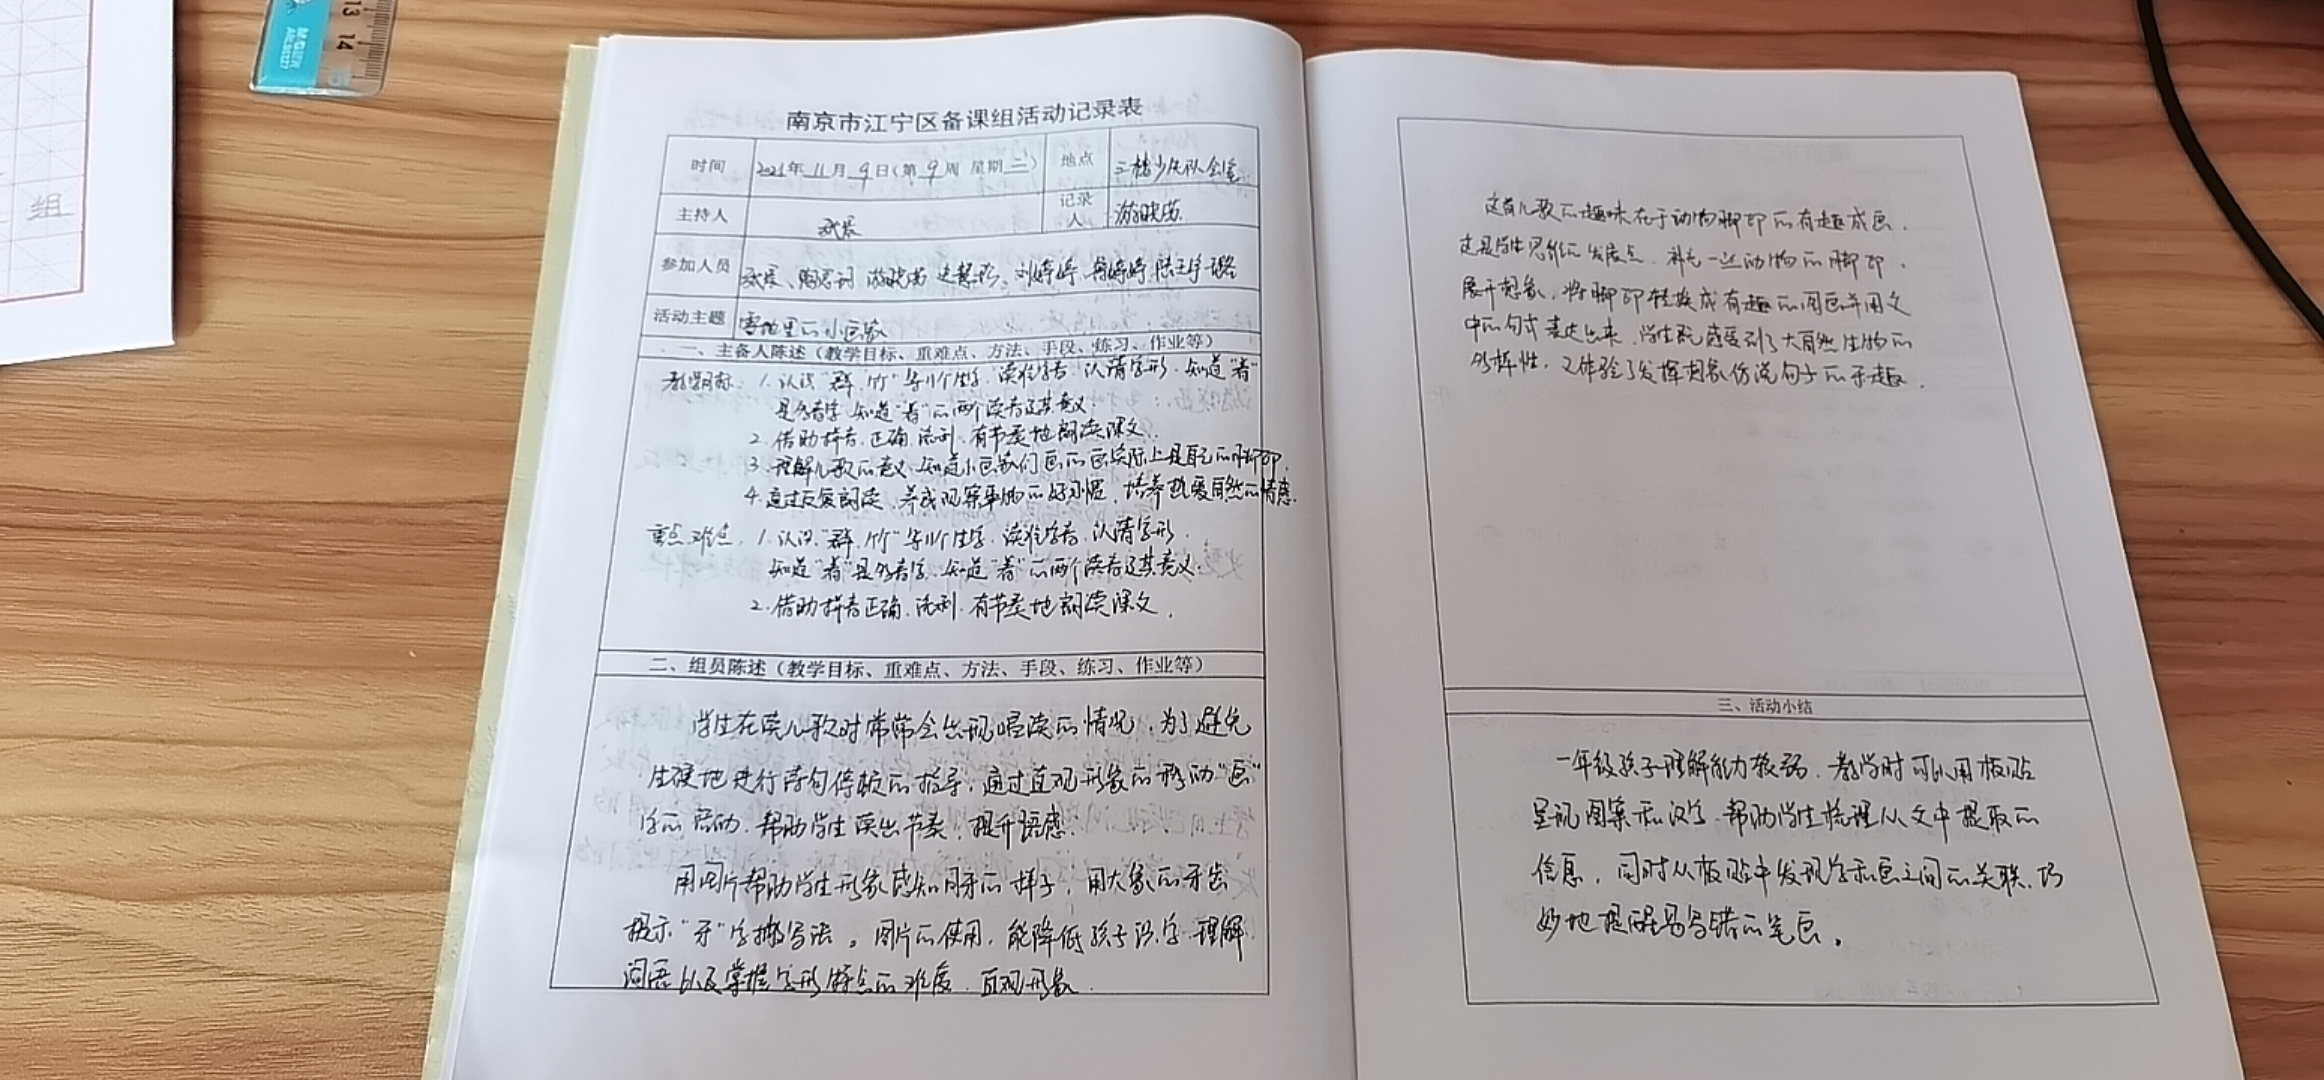 13
14
M&G
组
南京市江宁区备课组活动记录表
时间 2021年 11月 9日(第 9周 星期二) 地点 三楼少先队会室
主持人 记录人 游晓茜
参加人员 刘婷婷
活动主题 雪地里的小画家
一、主备人陈述（教学目标、重难点、方法、手段、练习、作业等）
教学目标：1.认识“群、竹”等11个生字，读准字音，认清字形，知道“着”
是多音字，知道“着”的两个读音及其意义.
2.借助拼音，正确、流利、有节奏地朗读课文.
3.理解儿歌的意义，知道小画家们画的画实际上是自己的脚印.
4.通过反复朗读，养成观察事物的好习惯，培养热爱自然的情感.
重点、难点：1.认识“群、竹”等11个生字，读准字音，认清字形.
知道“着”是多音字，知道“着”的两个读音及其意义.
2.借助拼音正确、流利、有节奏地朗读课文.
二、组员陈述（教学目标、重难点、方法、手段、练习、作业等）
学生在读儿歌时常常会出现唱读的情况，为了避免
生硬地进行诗句停顿的指导，通过直观形象的移动“画”
字的活动，帮助学生读出节奏，提升语感.
用图片帮助学生形象感知月牙的样子，用大象的牙齿
提示“牙”字撇写法。图片的使用，能降低孩子识字、理解
词语以及掌握字形特点的难度，直观形象.
这首儿歌的趣味在于动物脚印的有趣成画，
这是学生思维的发展点，补充一些动物的脚印，
展开想象，将脚印转换成有趣的图画并用文
中的句式表达出来，学生既感受到了大自然生物的
多样性，又体验了发挥想象仿说句子的乐趣.
三、活动小结
一年级孩子理解能力较弱，教学时可以用板贴
呈现图案和汉字，帮助学生梳理从文中提取的
信息，同时从板贴中发现字和画之间的关联，巧
妙地提醒易写错的笔画。